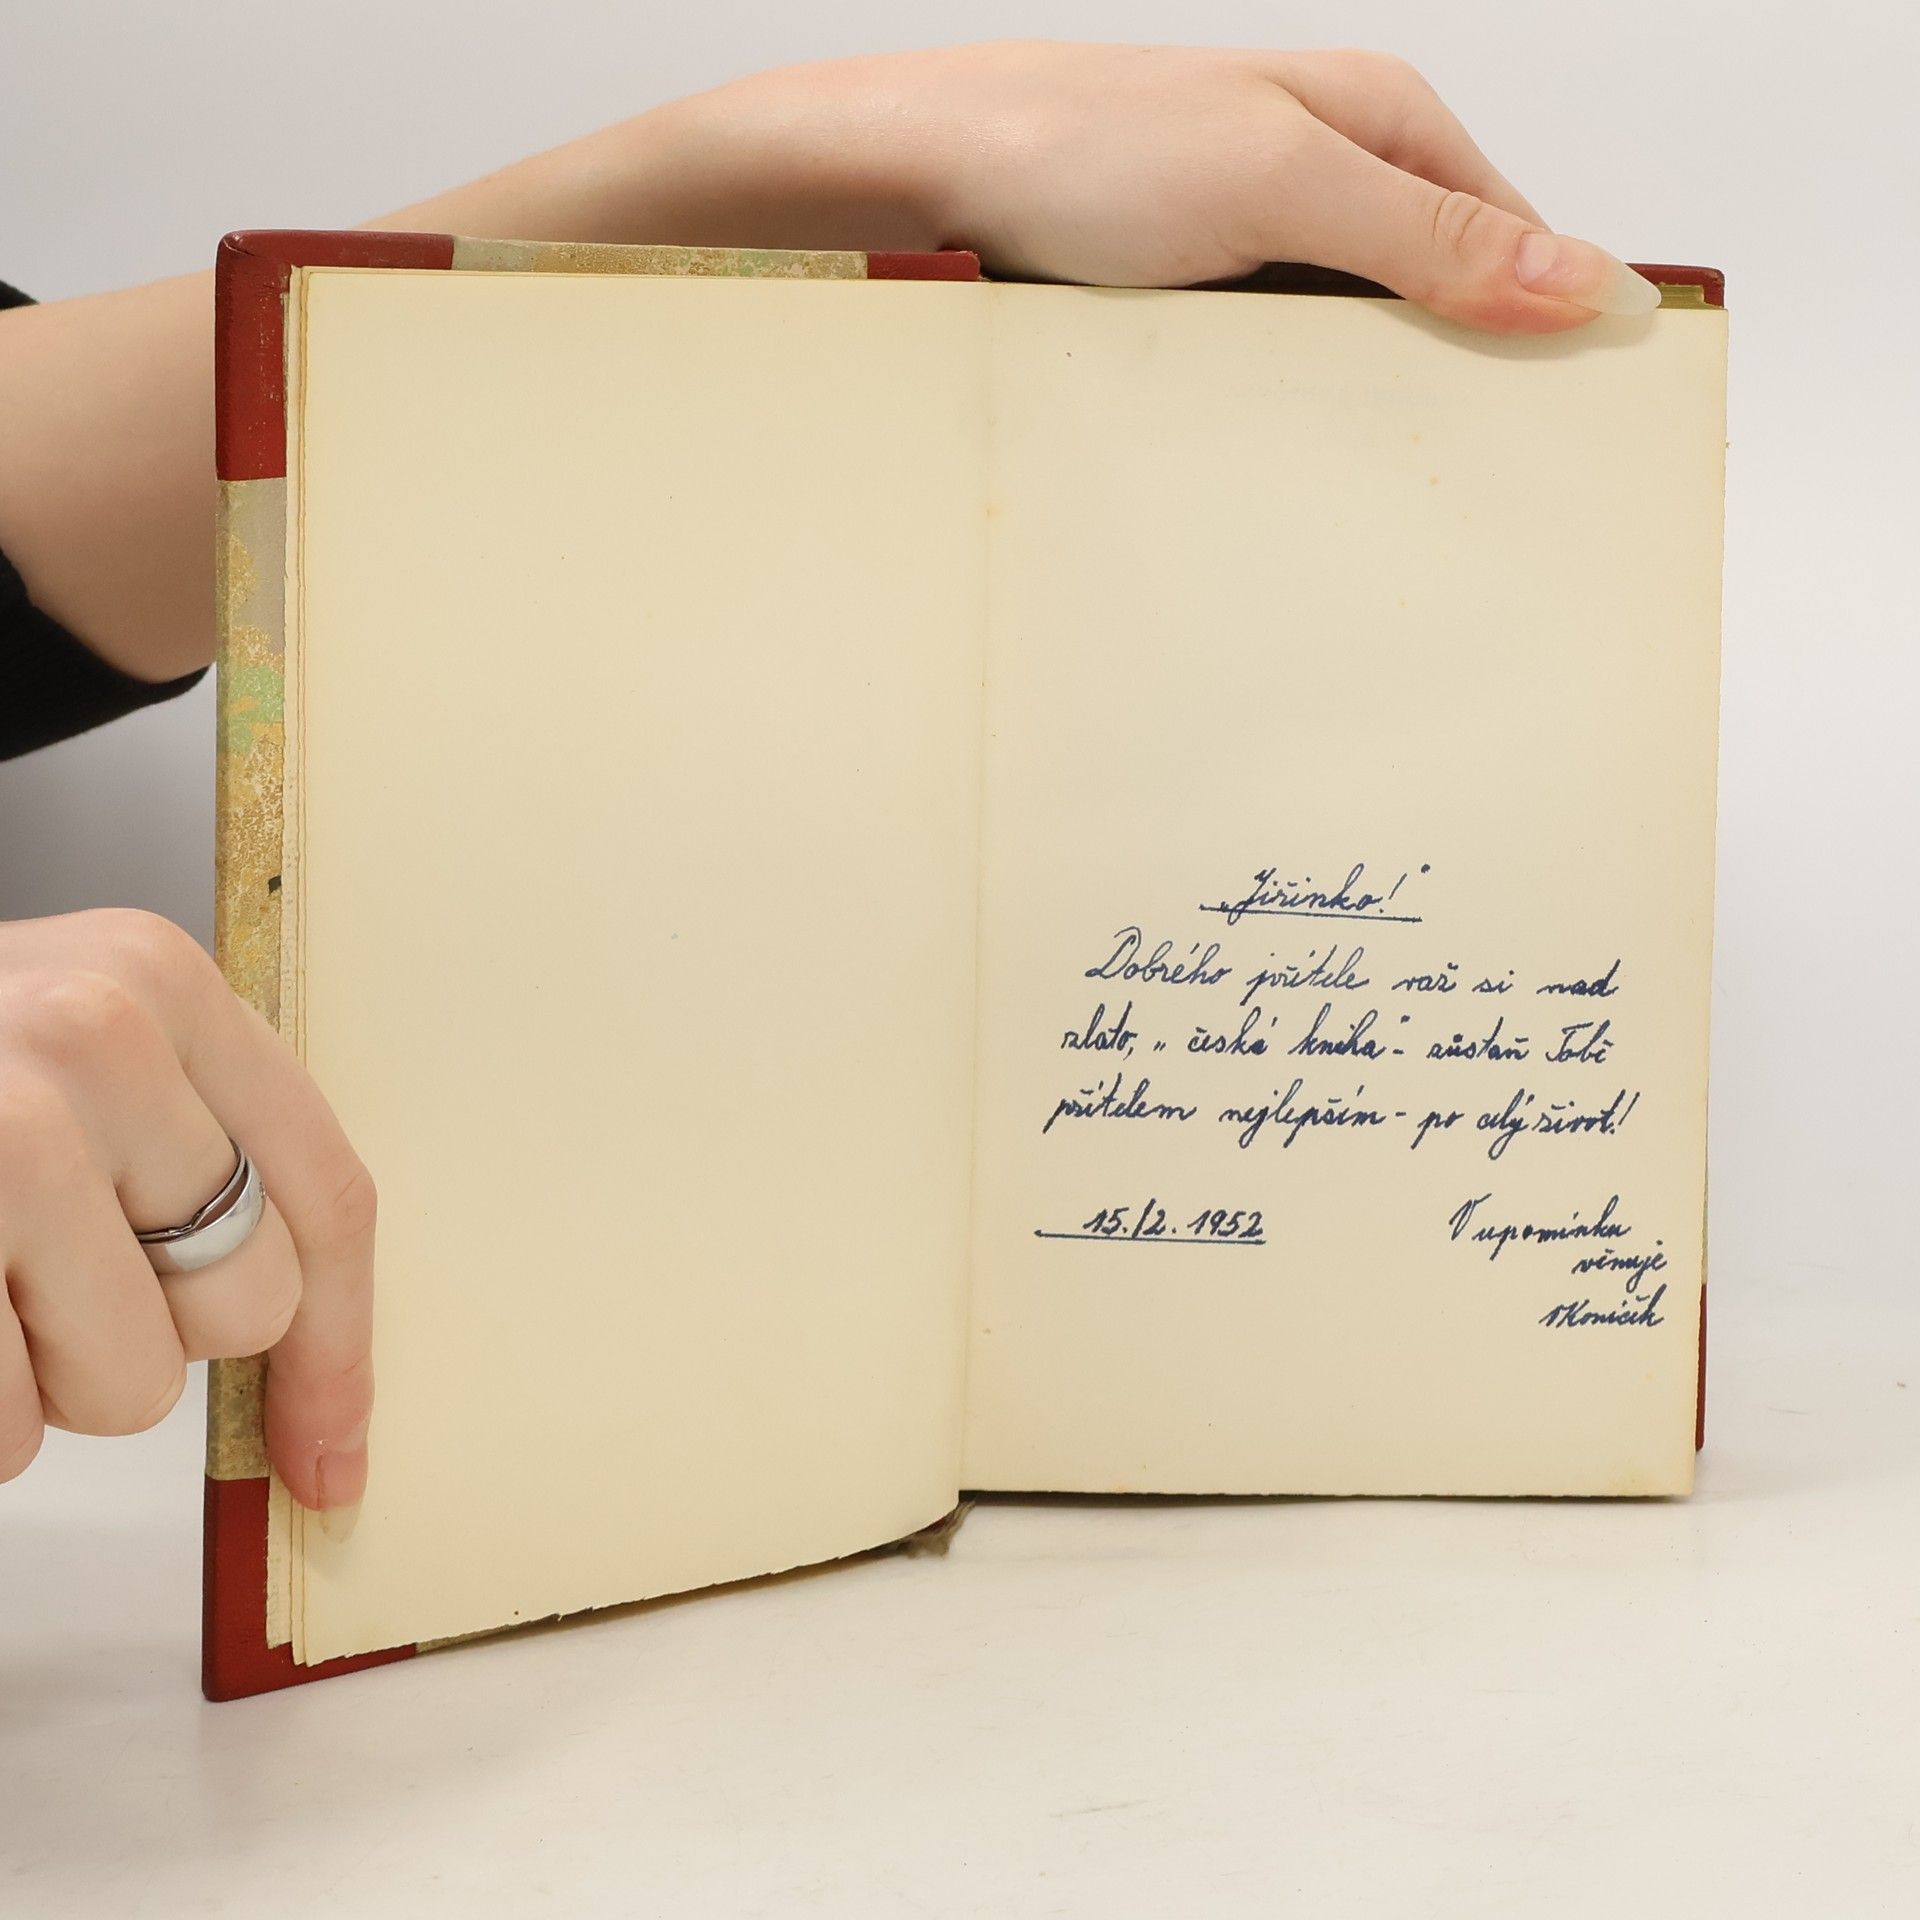 „Jiřinko!“
Dobrého přítele važ si nad
zlato, „česká kniha“ - zůstaň Tobě
přítelem nejlepším - po celý život!
15./2. 1952
V upomínku
věnuje
Koníček